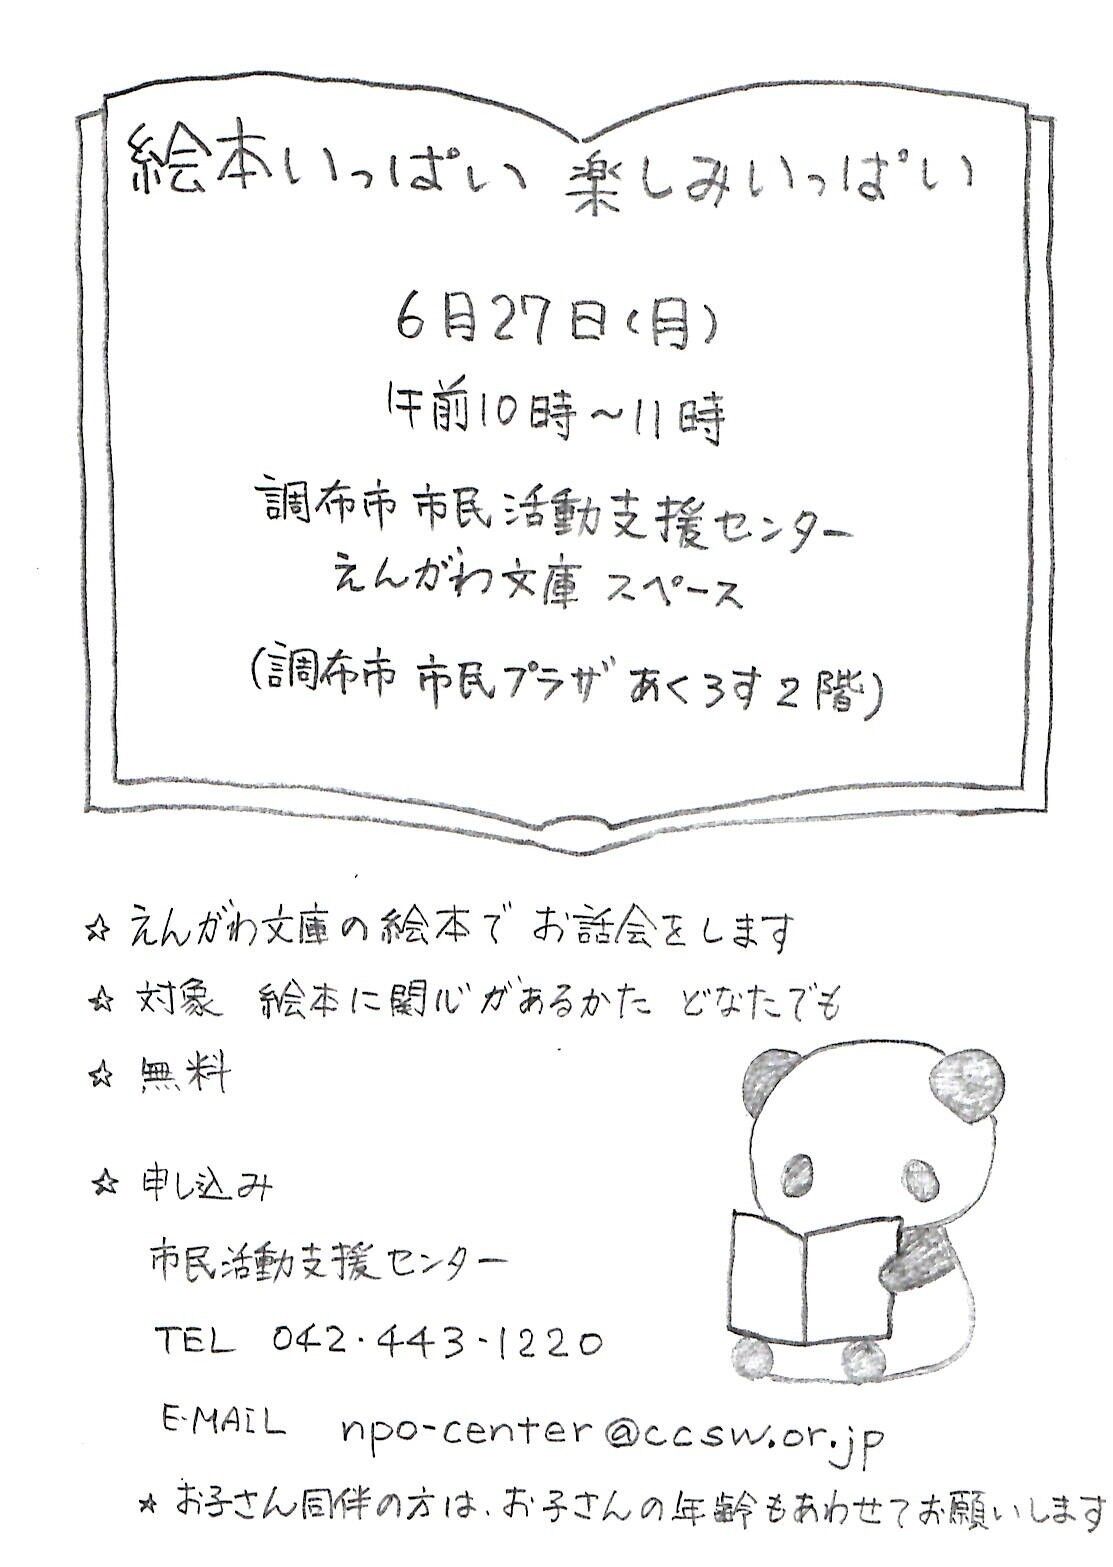 絵本いっぱい 楽しみいっぱい
6月27日(月)
午前10時～11時
調布市 市民活動支援センター
えんがわ文庫 スペース
(調布市 市民プラザ あくろす2階)
☆ えんがわ文庫の絵本で お話会をします
☆ 対象 絵本に関心があるかた どなたでも
☆ 無料
☆ 申し込み
市民活動支援センター
TEL 042・443-1220
E-MAIL npo-center@ccsw.or.jp
☆ お子さん同伴の方は、お子さんの年齢もあわせてお願いします